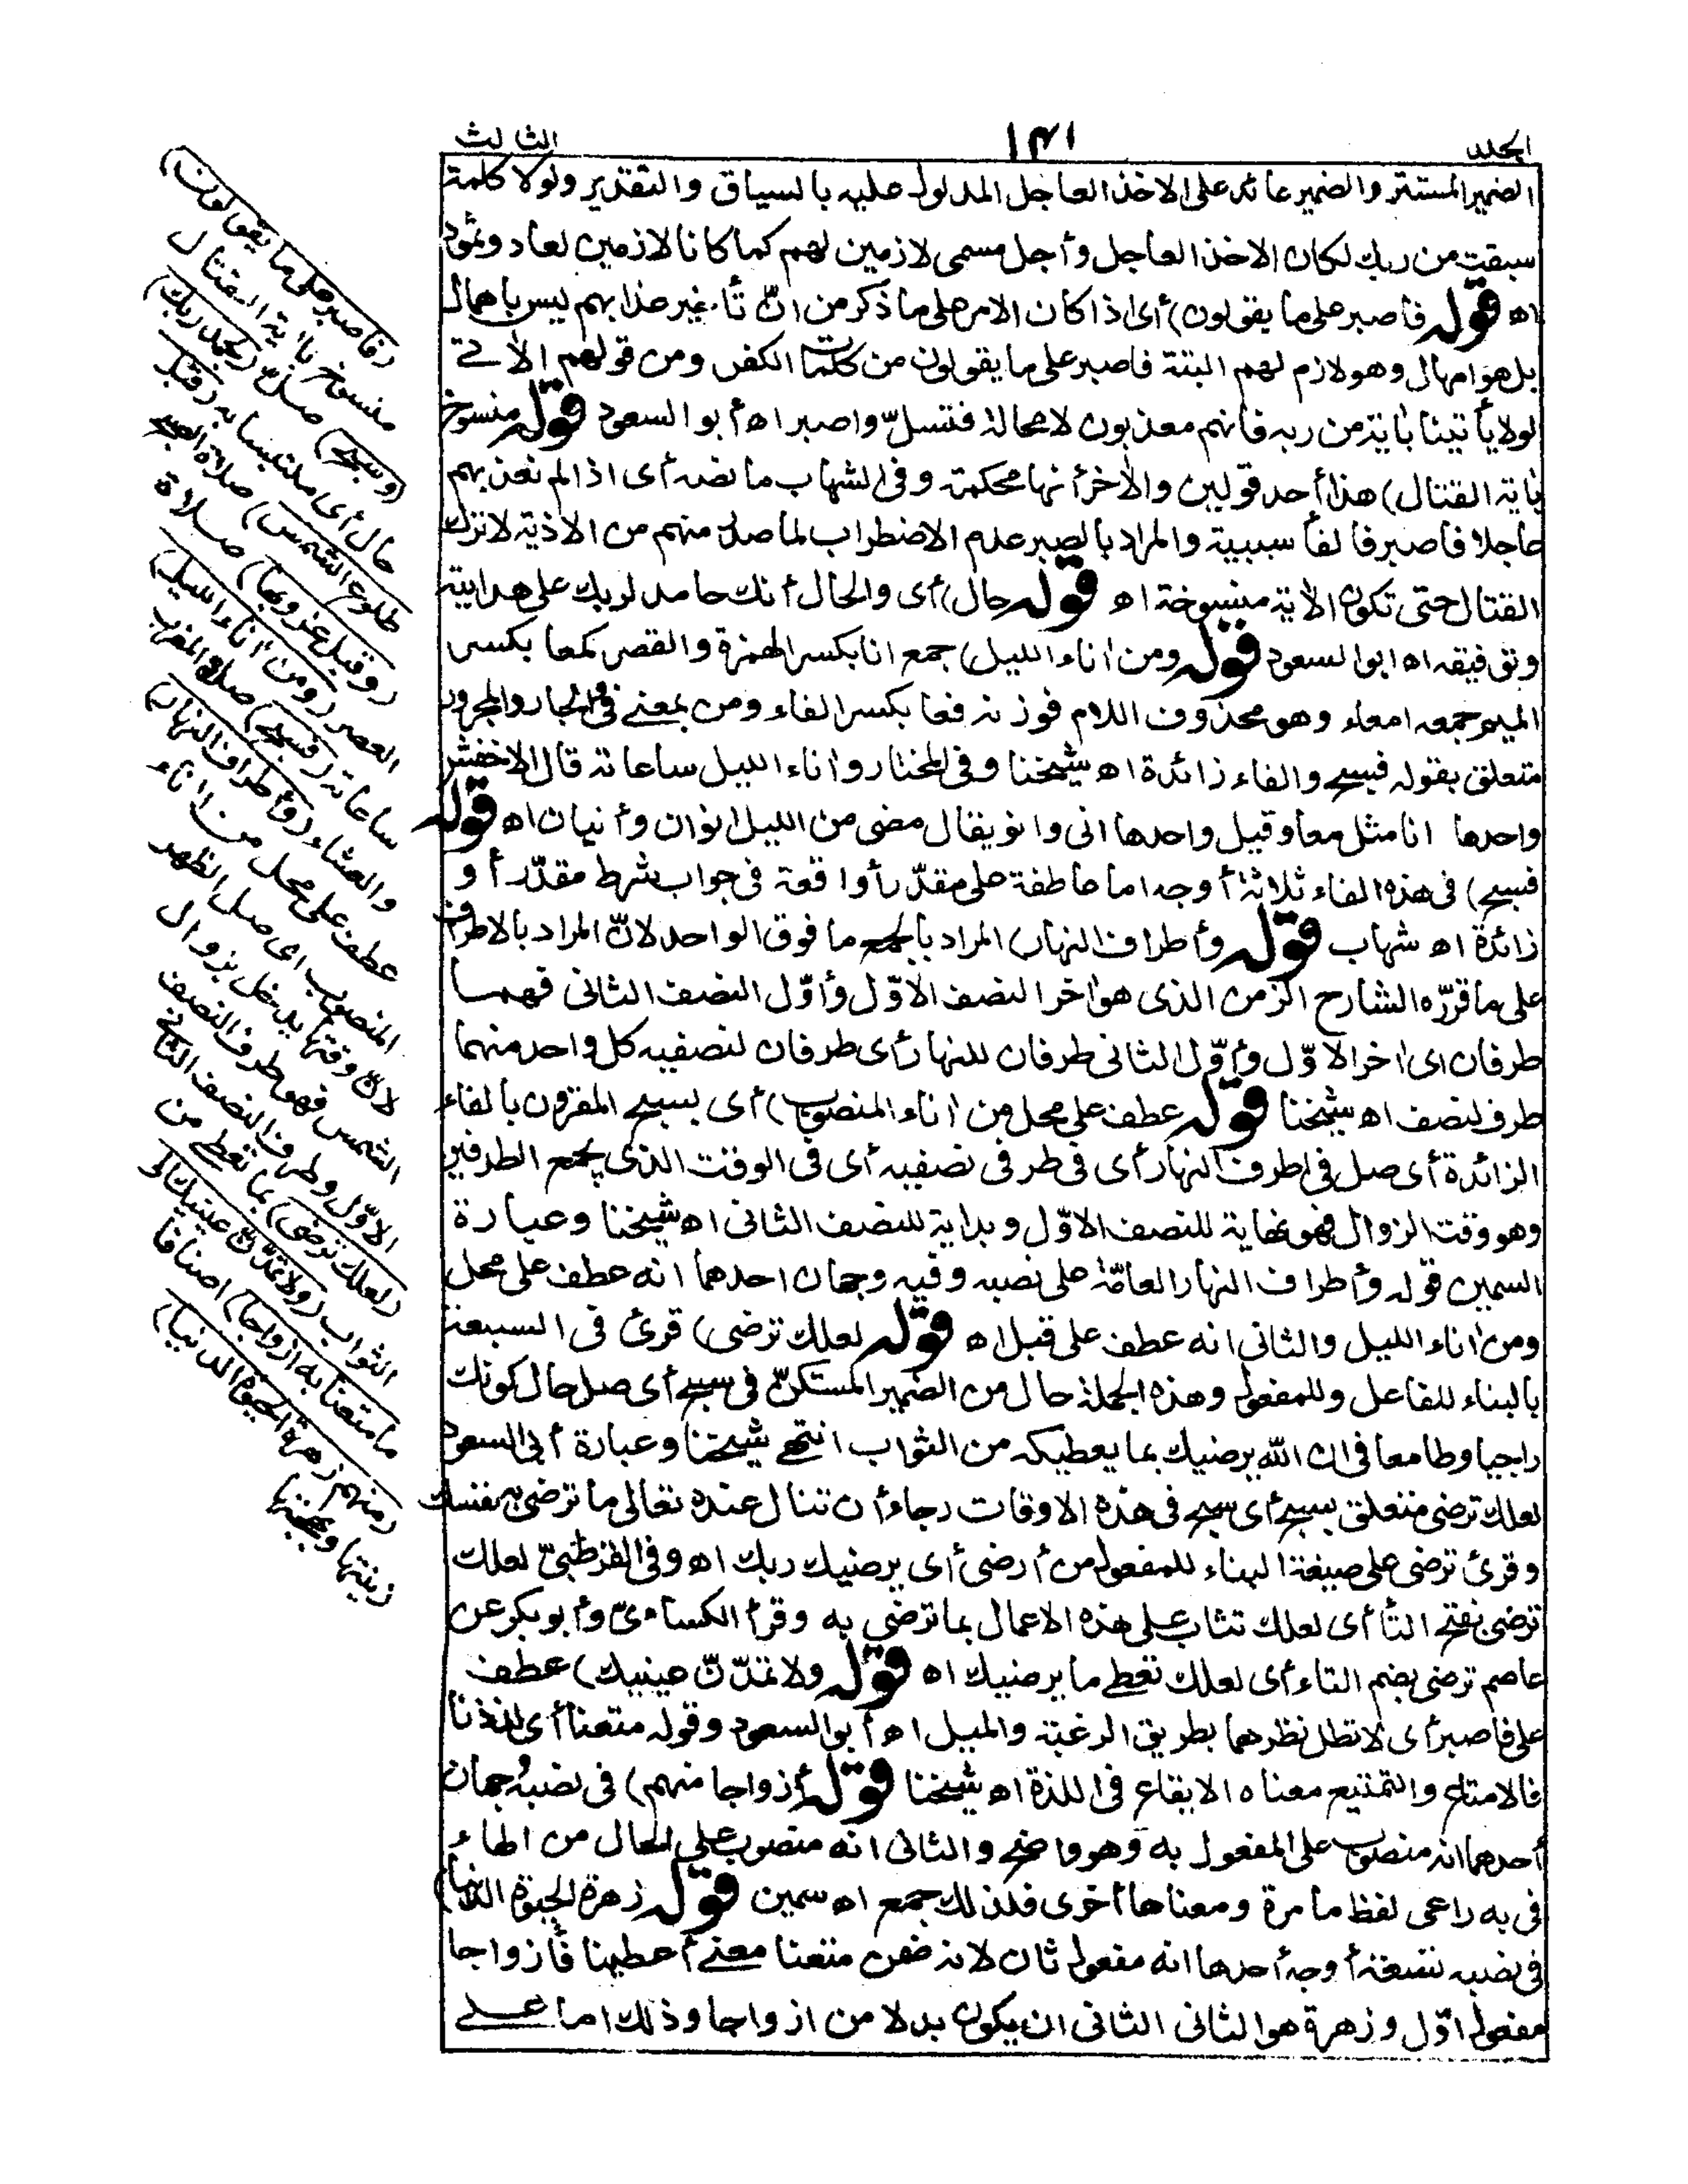 الجلد ١٤١ الثالث
الضمير المستتر والضمير عائد على الاخذ العاجل المدلول عليه بالسياق والتقدير ولولا كلمة
سبقت من ربك لكان الاخذ العاجل وأجل مسمى لازمين لهم كما كانا لازمين لعاد وثمود
اه قوله فاصبر على ما يقولون) أى اذا كان الامر على ما ذكر من انّ تأخير عذابهم ليس باهمال
بل هو امهال وهو لازم لهم البتة فاصبر على ما يقولون من كلمات الكفر ومن قولهم الآتى
لولا يأتينا بآية من ربه فانهم معذبون لا محالة فتسلّ واصبر اه أبو السعود قوله منسوخ
بآية القتال) هذا أحد قولين والآخر أنها محكمة وفى الشهاب ما نصه أى اذا لم نعذبهم
عاجلا فاصبر فالفأ سببية والمراد بالصبر عدم الاضطراب لما صدر منهم من الاذية لا ترك
القتال حتى تكون الآية منسوخة اه قوله حال) أى والحال أنك حامد لربك على هدايته
وتوفيقه اه ابو السعود قوله ومن آناء الليل) جمع انا بكسر الهمزة والقصر كمعا بكسر
الميم جمعه امعاء وهو محذوف اللام فوزنه فعا بكسر الفاء ومن بمعنى فى والجار والمجرور
متعلق بقوله فسبح والفاء زائدة اه شيخنا وفى المختار وآناء الليل ساعاته قال الاخفش
واحدها انا مثل معا وقيل واحدها انى وانو يقال مضى من الليل انوان وأنيان اه قوله
فسبح) فى هذه الفاء ثلاثة أوجه اما عاطفة على مقدّر أو اقعة فى جواب شرط مقدّر أو
زائدة اه شهاب قوله وأطراف النهار) المراد بالجمع ما فوق الواحد لانّ المراد بالاطراف
على ما قرّره الشارح الزمن الذى هو آخر النصف الاوّل وأوّل النصف الثانى فهما
طرفان اى آخر الاوّل وأوّل الثانى طرفان للنهار أى طرفان لنصفيه كل واحد منهما
طرف لنصف اه شيخنا قوله عطف على محل من آناء المنصوب) أى بسبح المقرون بالفاء
الزائدة أى صل فى اطراف النهار أى فى طرفى نصفيه أى فى الوقت الذى يجمع الطرفين
وهو وقت الزوال فهو نهاية للنصف الاوّل وبداية للنصف الثانى اه شيخنا وعبارة
السمين قوله وأطراف النهار العامّة على نصبه وفيه وجهان احدهما انه عطف على محل
ومن آناء الليل والثانى انه عطف على قبل اه قوله لعلك ترضى) قرئ فى السبعة
بالبناء للفاعل وللمفعول وهذه الجملة حال من الضمير المستكنّ فى سبح أى صل حال كونك
راجيا وطامعا فى ان الله يرضيك بما يعطيكه من الثواب انتهى شيخنا وعبارة أبى السعود
لعلك ترضى متعلق بسبح أى سبح فى هذه الاوقات رجاء أن تنال عنده تعالى ما ترضى به نفسك
وقرئ ترضى على صيغة البناء للمفعول من أرضى أى يرضيك ربك اه وفى القرطبىّ لعلك
ترضى بفتح التأ أى لعلك تثاب على هذه الاعمال بما ترضى به وقرأ الكساءىّ وأبو بكر عن
عاصم ترضى بضم التاء أى لعلك تعطى ما يرضيك اه قوله ولا تمدّنّ عينيك) عطف
على فاصبر أى لا تطل نظرهما بطريق الرغبة والميل اه أبو السعود وقوله متعنا أى لذذنا
فالامتاع والتمتيع معناه الايقاع فى اللذة اه شيخنا قوله أزواجا منهم) فى نصبه وجهان
أحدهما انه منصوب على المفعول به وهو واضح والثانى انه منصوب على الحال من الهاء
فى به راعى لفظ ما مرة ومعناها أخرى فلذلك جمع اه سمين قوله زهرة الحيوة الدنيا)
فى نصبه تسعة أوجه أحدها انه مفعول ثان لانه ضمن متعنا معنى أعطينا فأزواجا
مفعول اوّل وزهرة هو الثانى الثانى ان يكون بدلا من ازواجا وذلك اما على
(فاصبر على ما يقولون)
منسوخ بآية القتال
(وسبح) صلّ (بحمد ربك)
حال أى ملتبسا به (قبل
طلوع الشمس) صلاة الصبح
(وقبل غروبها) صلاة
العصر (ومن آناء الليل)
ساعاته (فسبح) صل المغرب
والعشاء (وأطراف النهار)
عطف على محل من آناء
المنصوب اى صل الظهر
لانّ وقتها يدخل بزوال
الشمس فهو طرف النصف
الاوّل وطرف النصف الثانى
(لعلك ترضى) بما تعطى من
الثواب (ولا تمدّنّ عينيك الى
ما متعنا به ازواجا) اصنافا
(منهم زهرة الحيوة الدنيا)
زينتها وبهجتها